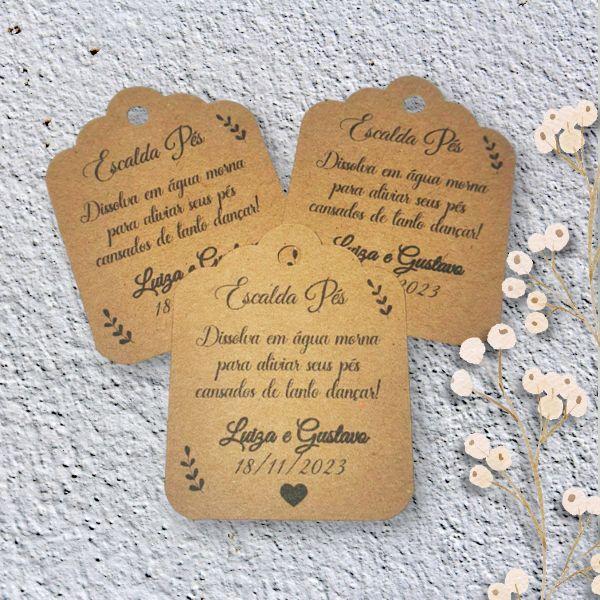 Escalda Pés
Dissolva em água morna
para aliviar seus pés
cansados de tanto dançar!
Luiza e
18/
Escalda Pés
Dissolva em água morna
para aliviar seus pés
cansados de tanto dançar!
Luiza e Gustavo
2023
Escalda Pés
Dissolva em água morna
para aliviar seus pés
cansados de tanto dançar!
Luiza e Gustavo
18/11/2023